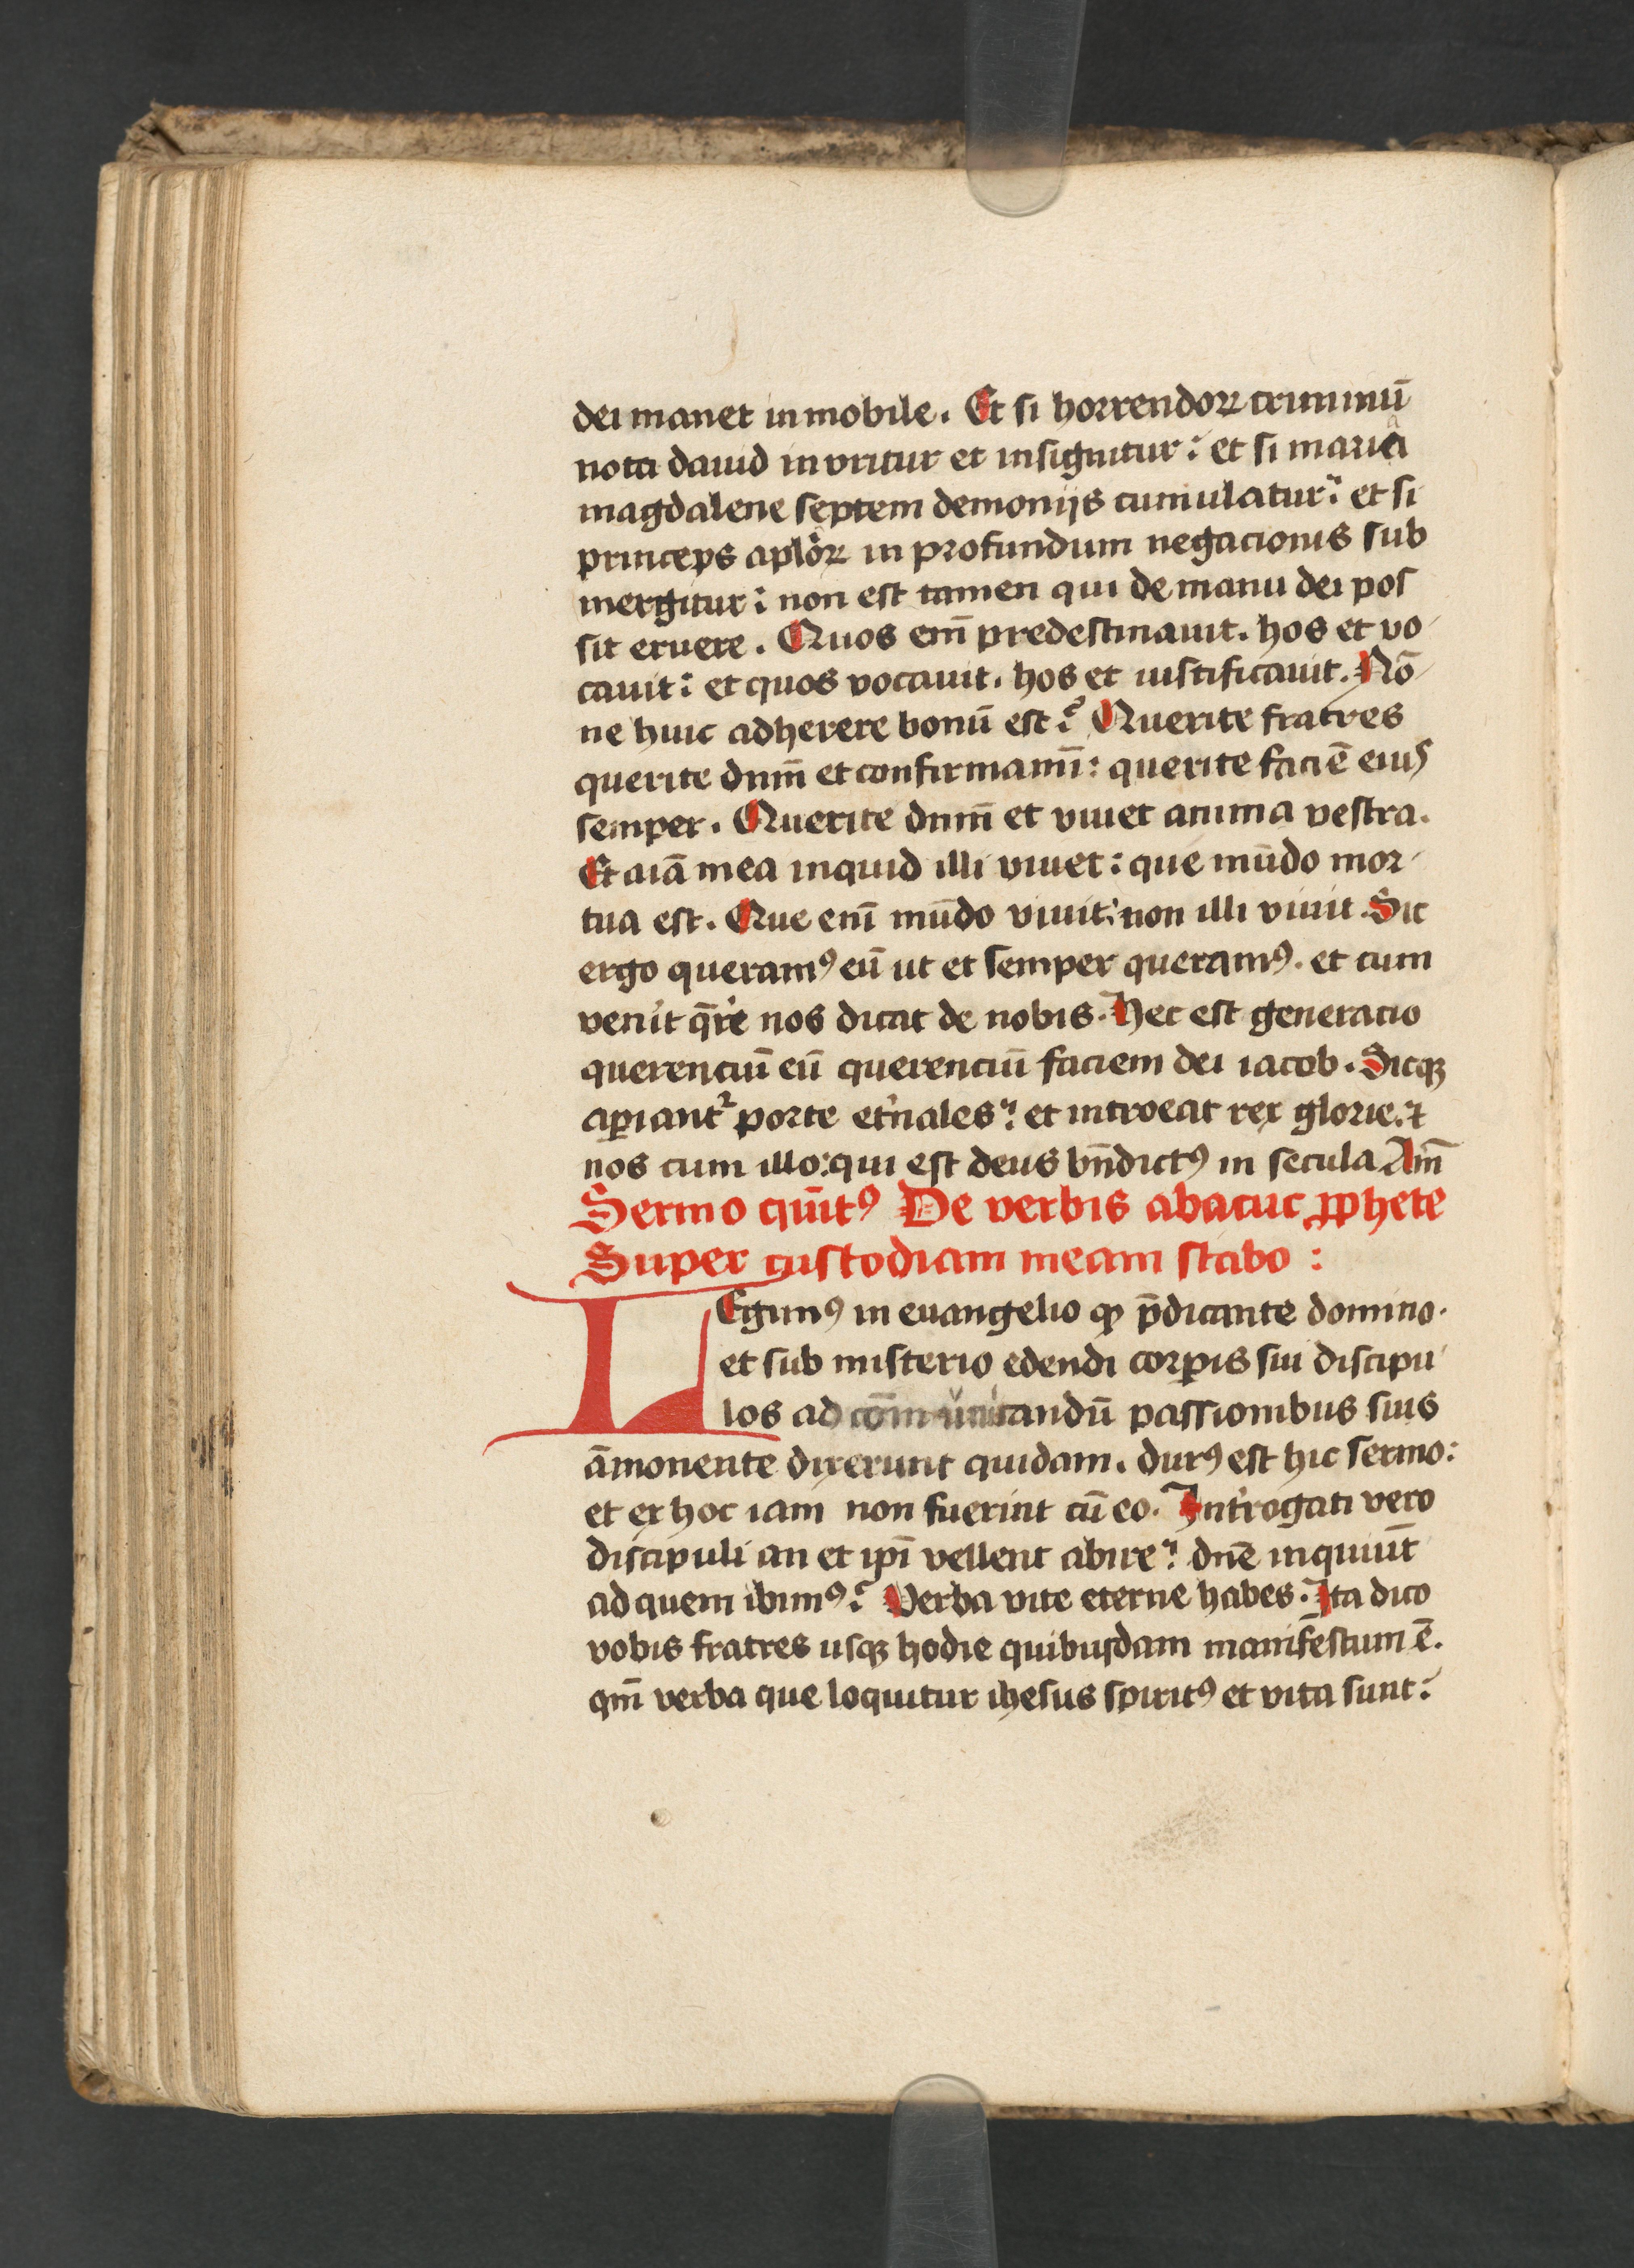 dei manet inmobile. Et si horrendoꝝ criminū
nota dauid invritur et insignitur: et si maria
magdalene septem demonijs cumulatur: et si
princeps aplōꝝ in profundum negacionis sub
mergitur: non est tamen qui de manu dei pos
sit eruere. Quos em̄ predestinauit. hos et vo
cauit: et quos vocauit. hos et iustificauit. Nō
ne huic adherere bonū est? Querite fratres
querite dnm̄ et confirmamī: querite faciē eius
semper. Querite dnm̄ et viuet anima vestra.
Et aiā mea inquid illi viuet: que mūdo mor
tua est. Que enī mūdo viuit: non illi viuit. Sic
ergo queramꝰ eū ut et semper queramꝰ. et cum
venit q̄re nos dicat de nobis. Hec est generacio
querenciū eū querenciū faciem dei iacob. Sicqꝫ
aꝑiantᷣ porte et'nales: et introeat rex glorie. ⁊
nos cum illo: qui est deus bn̄dictꝰ in secula Am̄
Sermo quītꝰ De verbis abacuc ꝓphete
Super custodiam meam stabo:
LEgimꝰ in euangelio ꝙ p̄dicante domino.
et sub misterio edendi corꝑis sui discipu
los ad cōmunicandū passionibus suis
āmonente dixerunt quidam. durꝰ est hic sermo:
et ex hoc iam non fuerint cū eo. Int'rogati vero
discipuli an et ipī vellent abire: dnē inquiūt
ad quem ibimꝰ? Verba vite eterne habes. Ita dico
vobis fratres usqꝫ hodie quibusdam manifestum ē.
qm̄ verba que loquitur ihesus spiritꝰ et vita sunt: